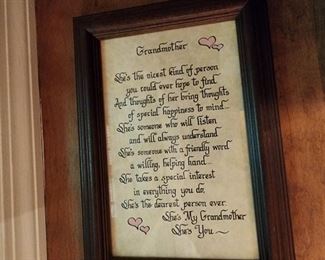 Grandmother
She's the nicest kind of person
you could ever hope to find
And thoughts of her bring thoughts
of special happiness to mind...
She's someone who will listen
and will always understand
She's someone with a friendly word
a willing, helping hand...
She takes a special interest
in everything you do,
She's the dearest person ever.
She's My Grandmother
She's You ~